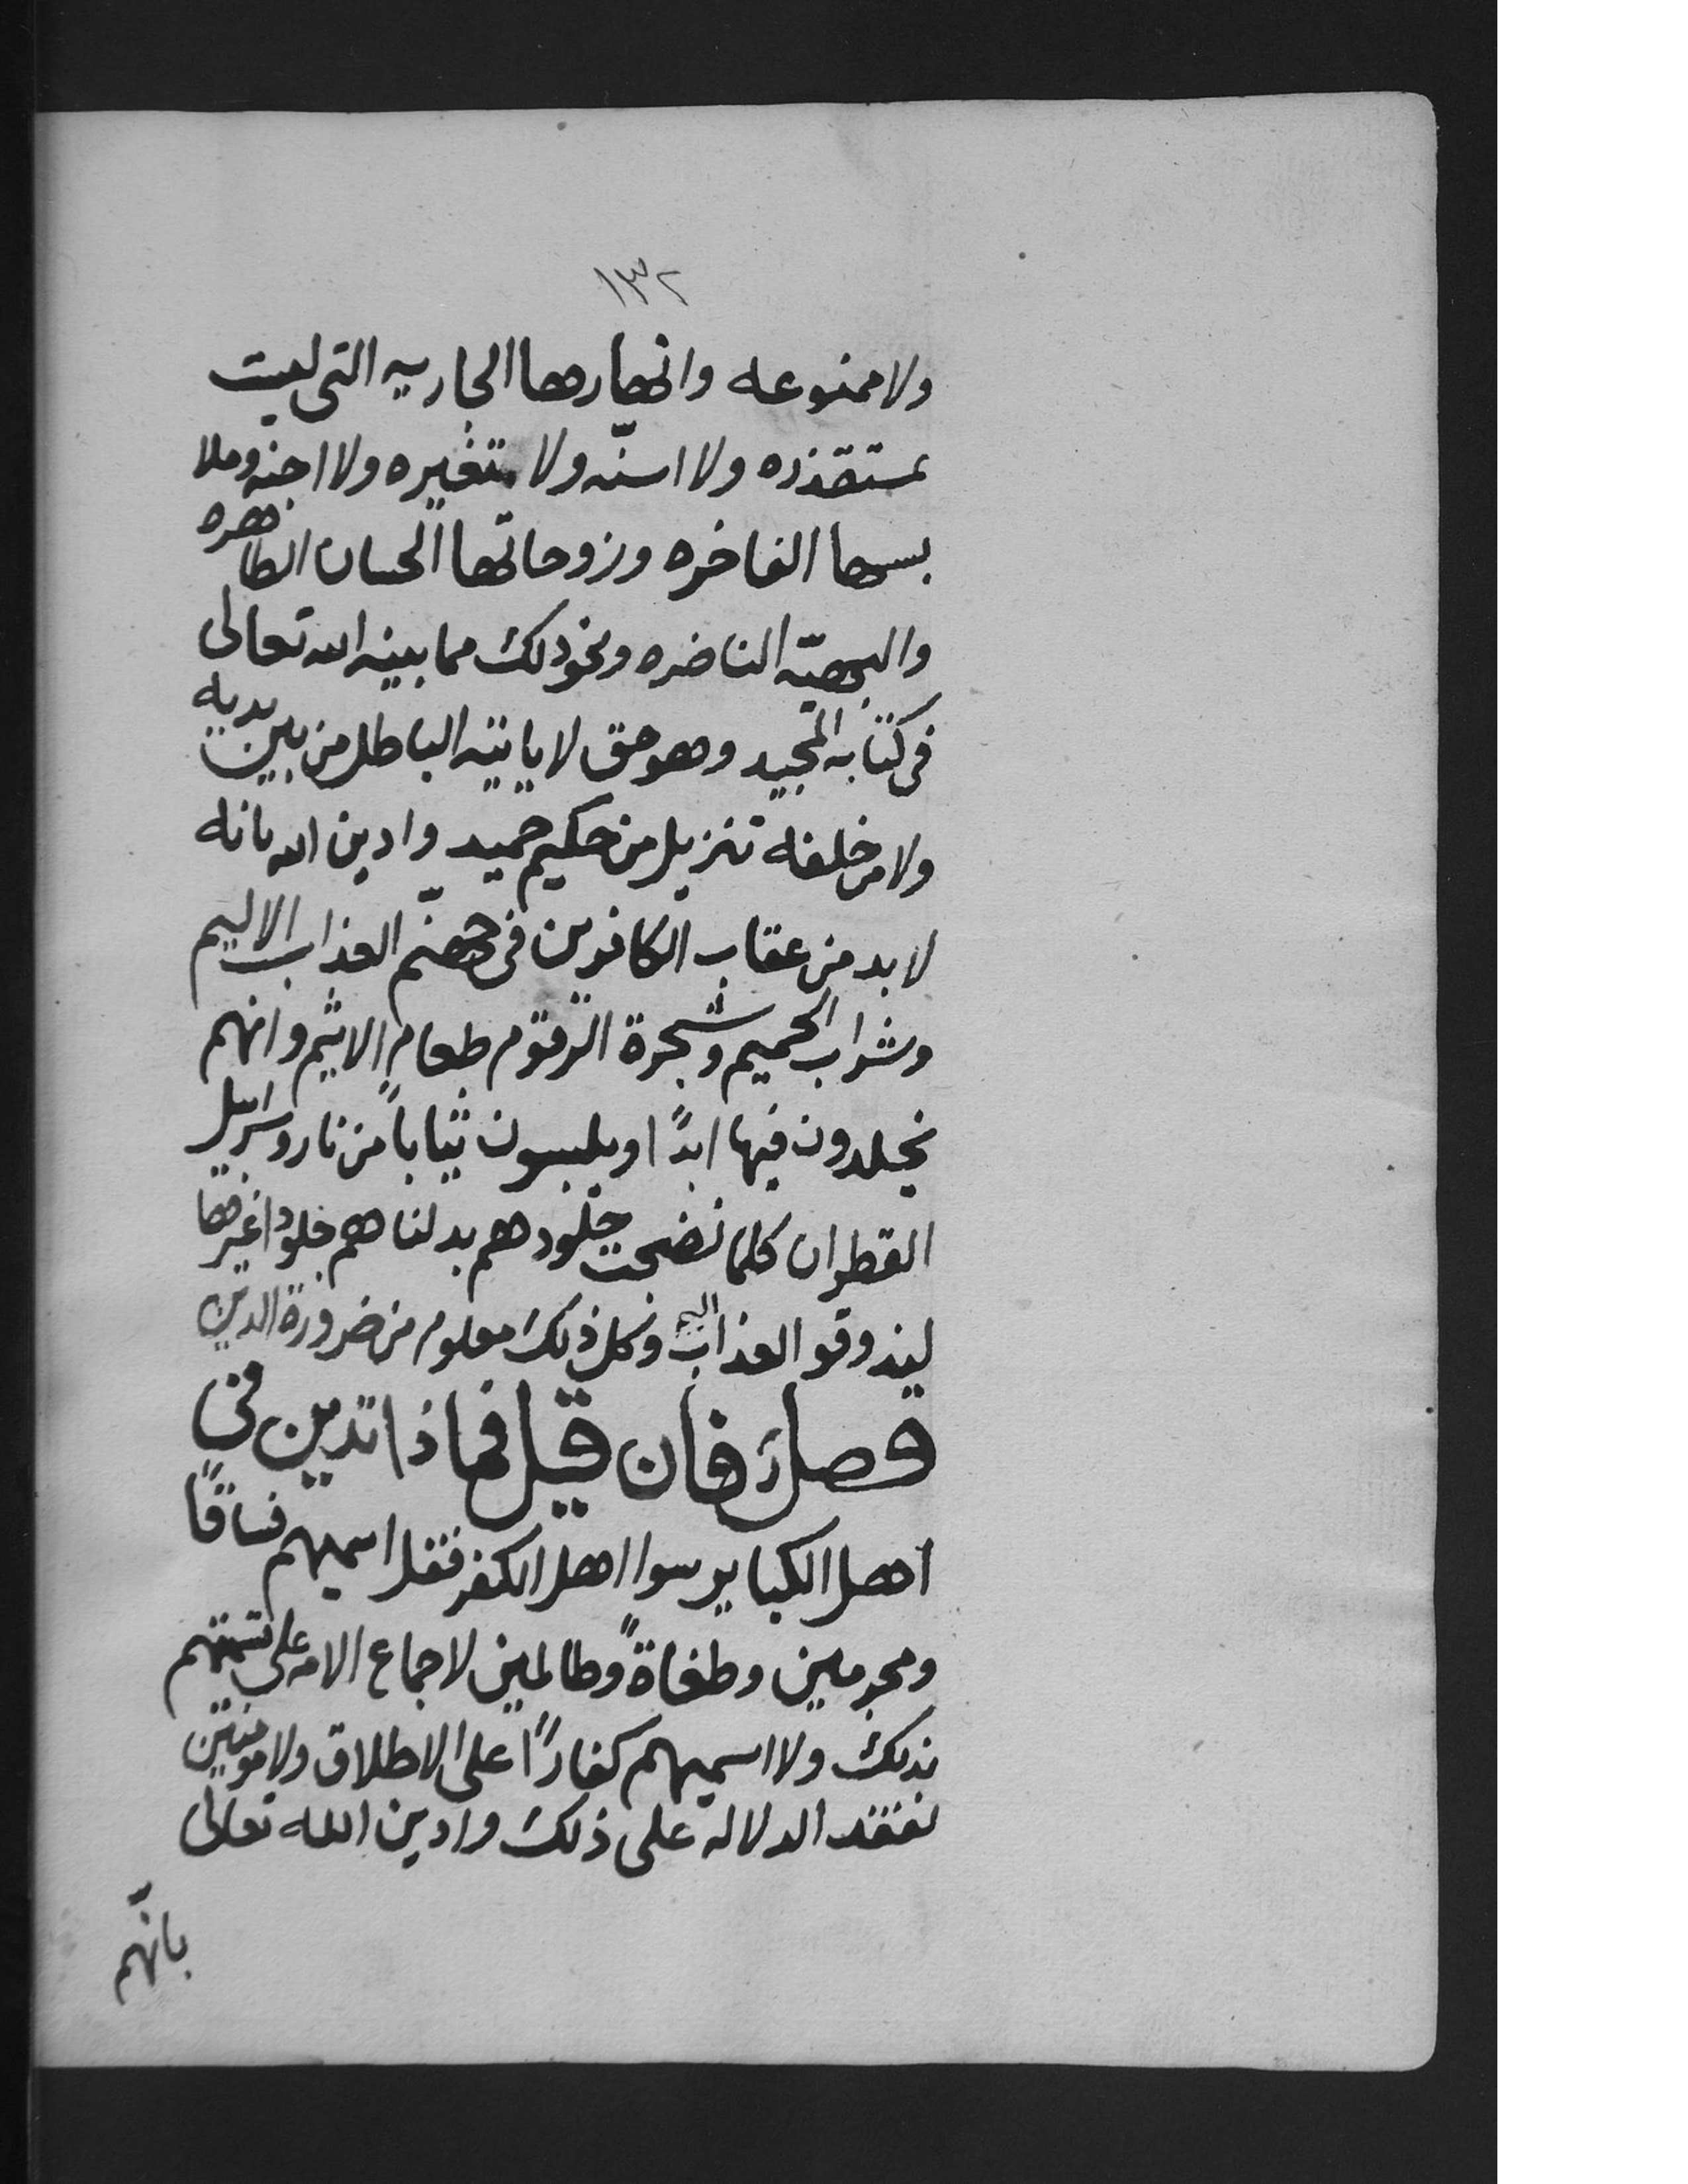 ١٣٢
ولا ممنوعه وانهارها الجاريه التى ليست
بمستقذره ولا اسنّه ولا متغيره ولا اجنه وملا
بسها الفاخره وزوجاتها الحسان الطاهره
والبهيّه الناضره ونحو ذلك مما بينه الله تعالى
فى كتابه المجيد وهو حق لا ياتيه الباطل من بين يديه
ولا من خلفه تنزيل من حكيم حميد وادين الله بانه
لا بد من عقاب الكافرين فى جهنّم العذاب الاليم
وشراب الحميم وشجرة الزقوم طعام الاثيم وانهم
يخلدون فيها ابدًا ويلبسون ثياباً من نار وسرابيل
القطران كلما نضجت جلودهم بدلناهم جلودا غيرها
ليذوقو العذاب اليم وكل ذلك معلوم من ضرورة الدين
فصل فان قيل فماذا تدين فى
اهل الكباير سوا اهل الكفر فقل اسميهم فساقًا
ومجرمين وطغاةً وظالمين لاجماع الامه على تسميتهم
بذلك ولا اسميهم كفارًا على الاطلاق ولا مومنين
لفقد الدلاله على ذلك وادين الله تعالى
بانّهم